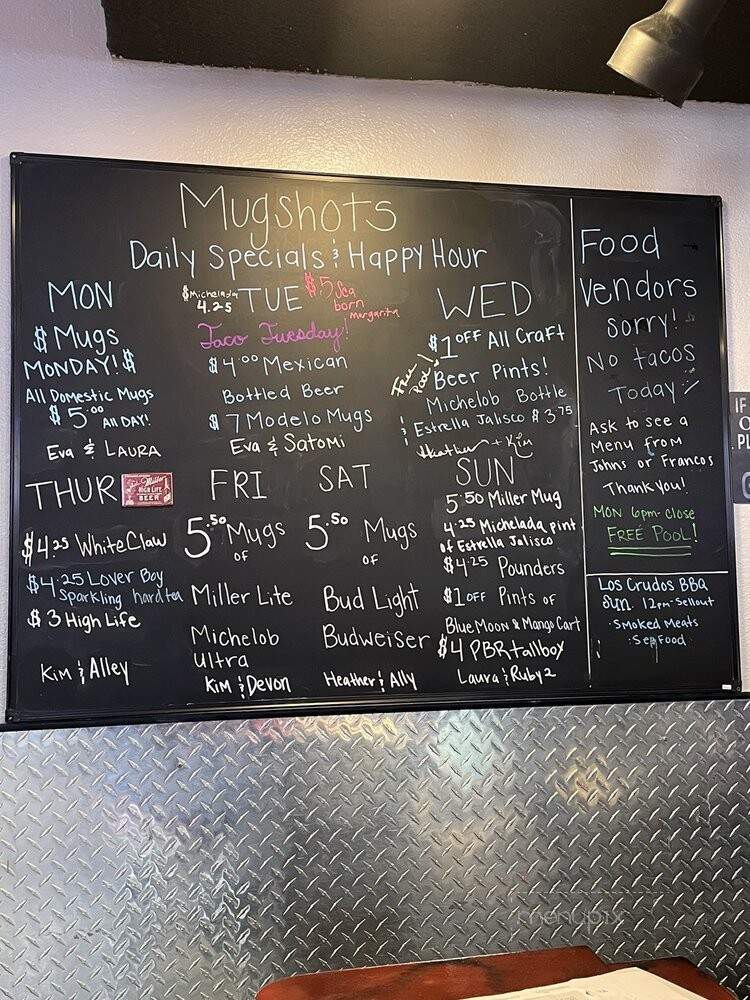 Mugshots
Daily Specials & Happy Hour
MON
$ Mugs
MONDAY! $
All Domestic Mugs
$5.00 All DAY!
Eva & LAURA
$Michelada
4.25
TUE
$5 Sea
born
margarita
Taco Tuesday!
$4.00 Mexican
Bottled Beer
$7 Modelo Mugs
Eva & Satomi
WED
$1 OFF All Craft
Beer Pints!
Free
Pool!
Michelob Bottle
& Estrella Jalisco $3.75
Heather + Kim
THUR
Miller
HIGH LIFE
BEER
$4.25 White Claw
$4.25 Lover Boy
Sparkling hard tea
$3 High Life
Kim & Alley
FRI
5.50 Mugs
OF
Miller Lite
Michelob
Ultra
Kim & Devon
SAT
5.50 Mugs
OF
Bud Light
Budweiser
Heather & Ally
SUN
5.50 Miller Mug
4.25 Michelada pint
of Estrella Jalisco
$4.25 Pounders
$1 OFF Pints OF
Blue Moon & Mango Cart
$4 PBR tallboy
Laura & Ruby 2
Food
Vendors
Sorry!
No tacos
Today
Ask to see a
Menu from
Johns or Francos
Thank you!
MON 6pm-close
FREE POOL!
Los Crudos BBQ
Sun. 12pm-Sellout
· Smoked Meats
· Seafood
IF
menupix